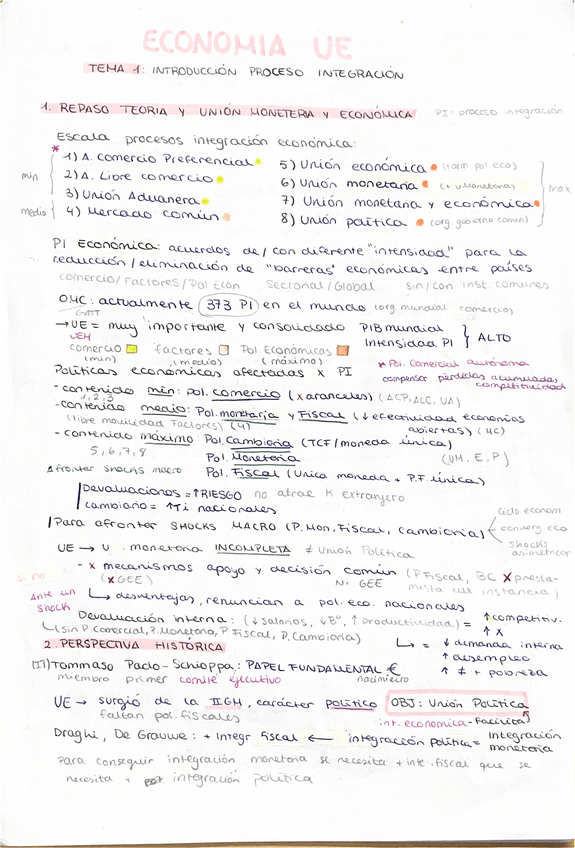 ECONOMIA UE
TEMA 1: INTRODUCCIÓN PROCESO INTEGRACIÓN
1. REPASO TEORIA Y UNIÓN MONETERIA Y ECONÓMICA PI= proceso integración
Escala procesos integración económica:
* 1) A. comercio Preferencial 5) Unión económica (+arm pol. eco)
min 2) A. Libre comercio 6) Unión monetaria (+ u.Monetaria) max
3) Unión Aduanera 7) Unión monetaria y económica
medio 4) Mercado común 8) Unión política (org. gobierno comun)
PI Económica: acuerdos de/con diferente "intensidad" para la
reducción/eliminación de "barreras" económicas entre países
comercio/Factores/Pol Econ Sectorial/Global sin/con Inst. comunes
OMC: actualmente 373 PI en el mundo (org mundial comercio)
GATT
→ UE = muy importante y consolidado PIB mundial
UEM Intensidad PI } ALTO
comercio factores Pol Económicas * Pol. Comercial autónoma
(min) (medio) (máximo) compensar pérdidas acumuladas
Políticas económicas afectadas x PI competitividad
- contenido min: pol. comercio (x aranceles) (ACP, ALC, UA)
1, 2, 3
- contenido medio: Pol. monetaria y Fiscal (↓ efectividad economias
(libre movilidad Factores) (4) abiertas) (MC)
- contenido máximo: Pol. Cambiaria (TCF/moneda única)
5, 6, 7, 8 Pol. Monetaria (UM, E, P)
Afrontar shocks macro Pol. Fiscal (Unica moneda + P.F. única)
Devaluaciones = ↑RIESGO no atrae K extranjero
cambiaria = ↑Ti nacionales
Para afrontar SHOCKS MACRO (P. Mon, Fiscal, Cambiaria) Ciclo econom
converg. eco
shocks asimétricos
UE → U. monetaria INCOMPLETA ≠ Unión Política
si no - x mecanismos apoyo y decisión común (P Fiscal, BC x presta-
(x GEE) Ni GEE mista ult instancia)
Ante un shock ↳ desventajas, renuncian a pol. eco. nacionales
Devaluación interna: (↓ salarios, ↓Bº, ↑ Productividad) = ↑ competitiv.
↳ (sin P Comercial, P. Monetaria, P Fiscal, P. Cambiaria) ↑ X
↳ = ↓ demanda interna
2. PERSPECTIVA HISTÓRICA ↑ desempleo
↑ ≠ + pobreza
(IT) Tommaso Pado-Schioppa: PAPEL FUNDAMENTAL €
miembro primer comité ejecutivo nacimiento
UE → surgió de la IIGM, carácter político OBJ: Unión Política
faltan pol. fiscales int. economica - Facilita
Draghi, De Grauwe: + integr fiscal ← integración política = Integración monetaria
Para conseguir integración monetaria se necesita + inte. fiscal que se
necesita + integración política